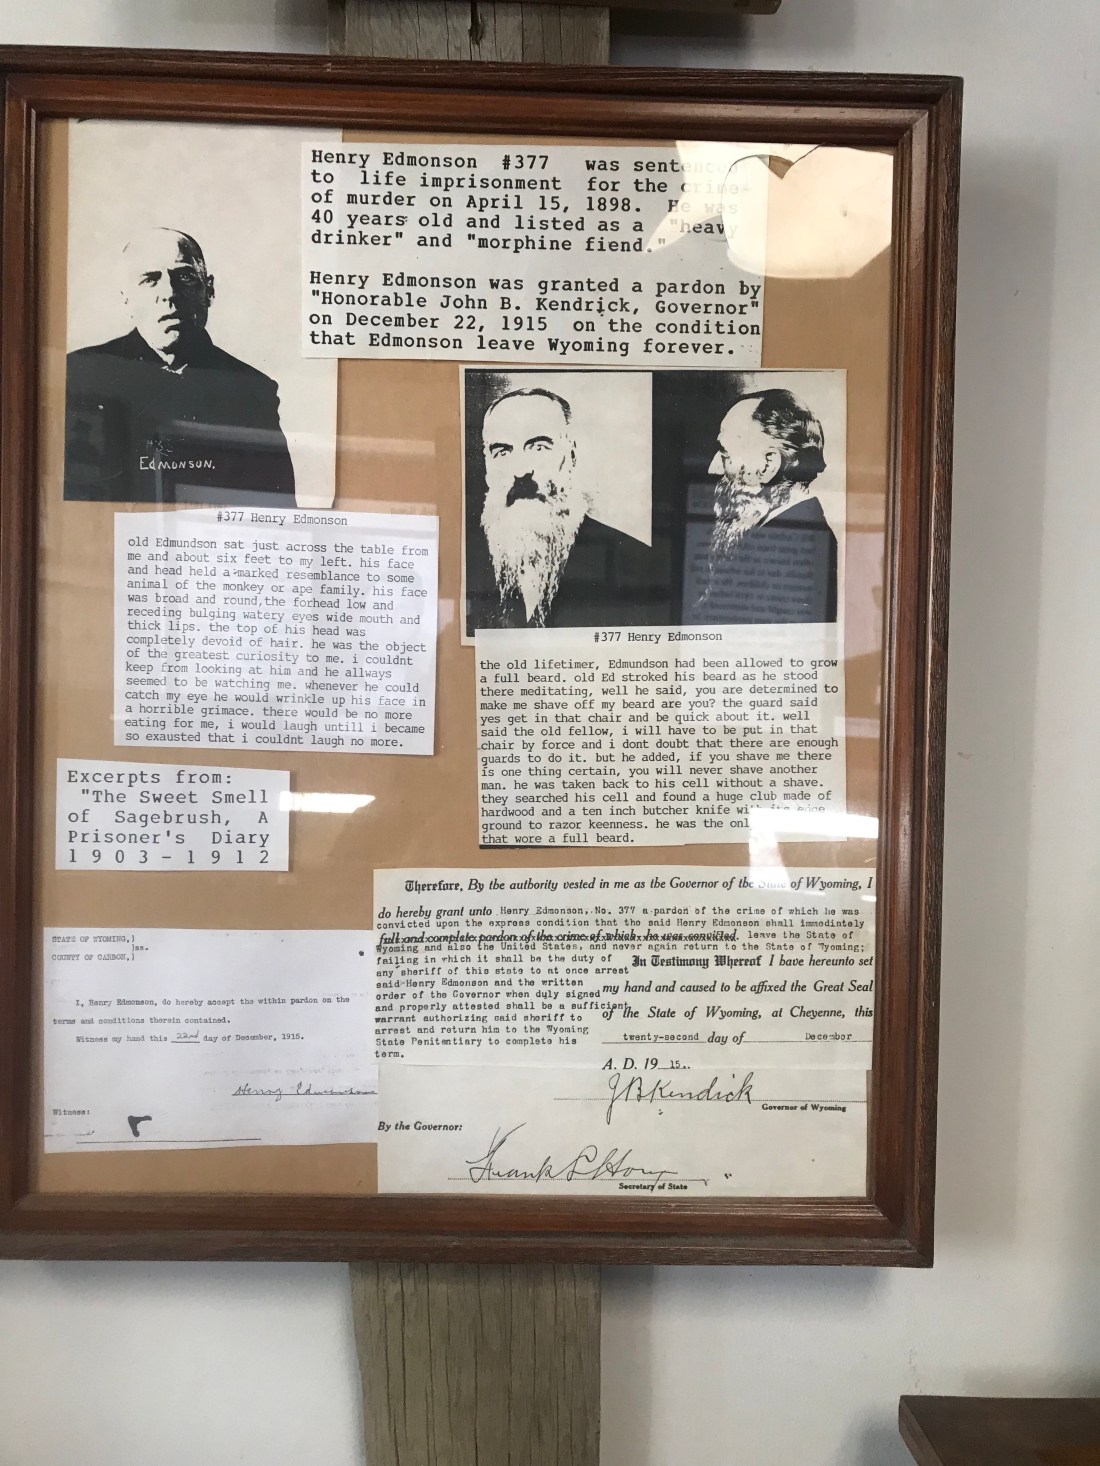 Henry Edmonson #377 was sentenced
to life imprisonment for the crime
of murder on April 15, 1898. He was
40 years old and listed as a "heavy
drinker" and "morphine fiend."
Henry Edmonson was granted a pardon by
"Honorable John B. Kendrick, Governor"
on December 22, 1915 on the condition
that Edmonson leave Wyoming forever.
EDMONSON.
#377 Henry Edmonson
old Edmundson sat just across the table from
me and about six feet to my left. his face
and head held a marked resemblance to some
animal of the monkey or ape family. his face
was broad and round, the forhead low and
receding bulging watery eyes wide mouth and
thick lips. the top of his head was
completely devoid of hair. he was the object
of the greatest curiosity to me. i couldnt
keep from looking at him and he allways
seemed to be watching me. whenever he could
catch my eye he would wrinkle up his face in
a horrible grimace. there would be no more
eating for me, i would laugh untill i became
so exausted that i couldnt laugh no more.
Excerpts from:
"The Sweet Smell
of Sagebrush, A
Prisoner's Diary
1903-1912
#377 Henry Edmonson
the old lifetimer, Edmundson had been allowed to grow
a full beard. old Ed stroked his beard as he stood
there meditating, well he said, you are determined to
make me shave off my beard are you? the guard said
yes get in that chair and be quick about it. well
said the old fellow, i will have to be put in that
chair by force and i dont doubt that there are enough
guards to do it. but he added, if you shave me there
is one thing certain, you will never shave another
man. he was taken back to his cell without a shave.
they searched his cell and found a huge club made of
hardwood and a ten inch butcher knife with its edge
ground to razor keenness. he was the
that wore a full beard.
STATE OF WYOMING,)
)ss.
COUNTY OF CARBON,)
I, Henry Edmonson, do hereby accept the within pardon on the
terms and conditions therein contained.
Witness my hand this 22nd day of December, 1915.
Henry Edmonson
Witness:
Therefore, By the authority vested in me as the Governor of the State of Wyoming, I
do hereby grant unto Henry Edmonson, No. 377 a pardon of the crime of which he was
convicted upon the express condition that the said Henry Edmonson shall immediately
full and complete pardon of the crime of which he was convicted. leave the State of
Wyoming and also the United States, and never again return to the State of Wyoming;
failing in which it shall be the duty of In Testimony Whereof I have hereunto set
any sheriff of this state to at once arrest
said Henry Edmonson and the written my hand and caused to be affixed the Great Seal
order of the Governor when duly signed
and properly attested shall be a sufficient of the State of Wyoming, at Cheyenne, this
warrant authorizing said sheriff to
arrest and return him to the Wyoming twenty-second day of December
State Penitentiary to complete his
term.
A. D. 19 15.
J B Kendrick
Governor of Wyoming
By the Governor:
Frank L Houx
Secretary of State